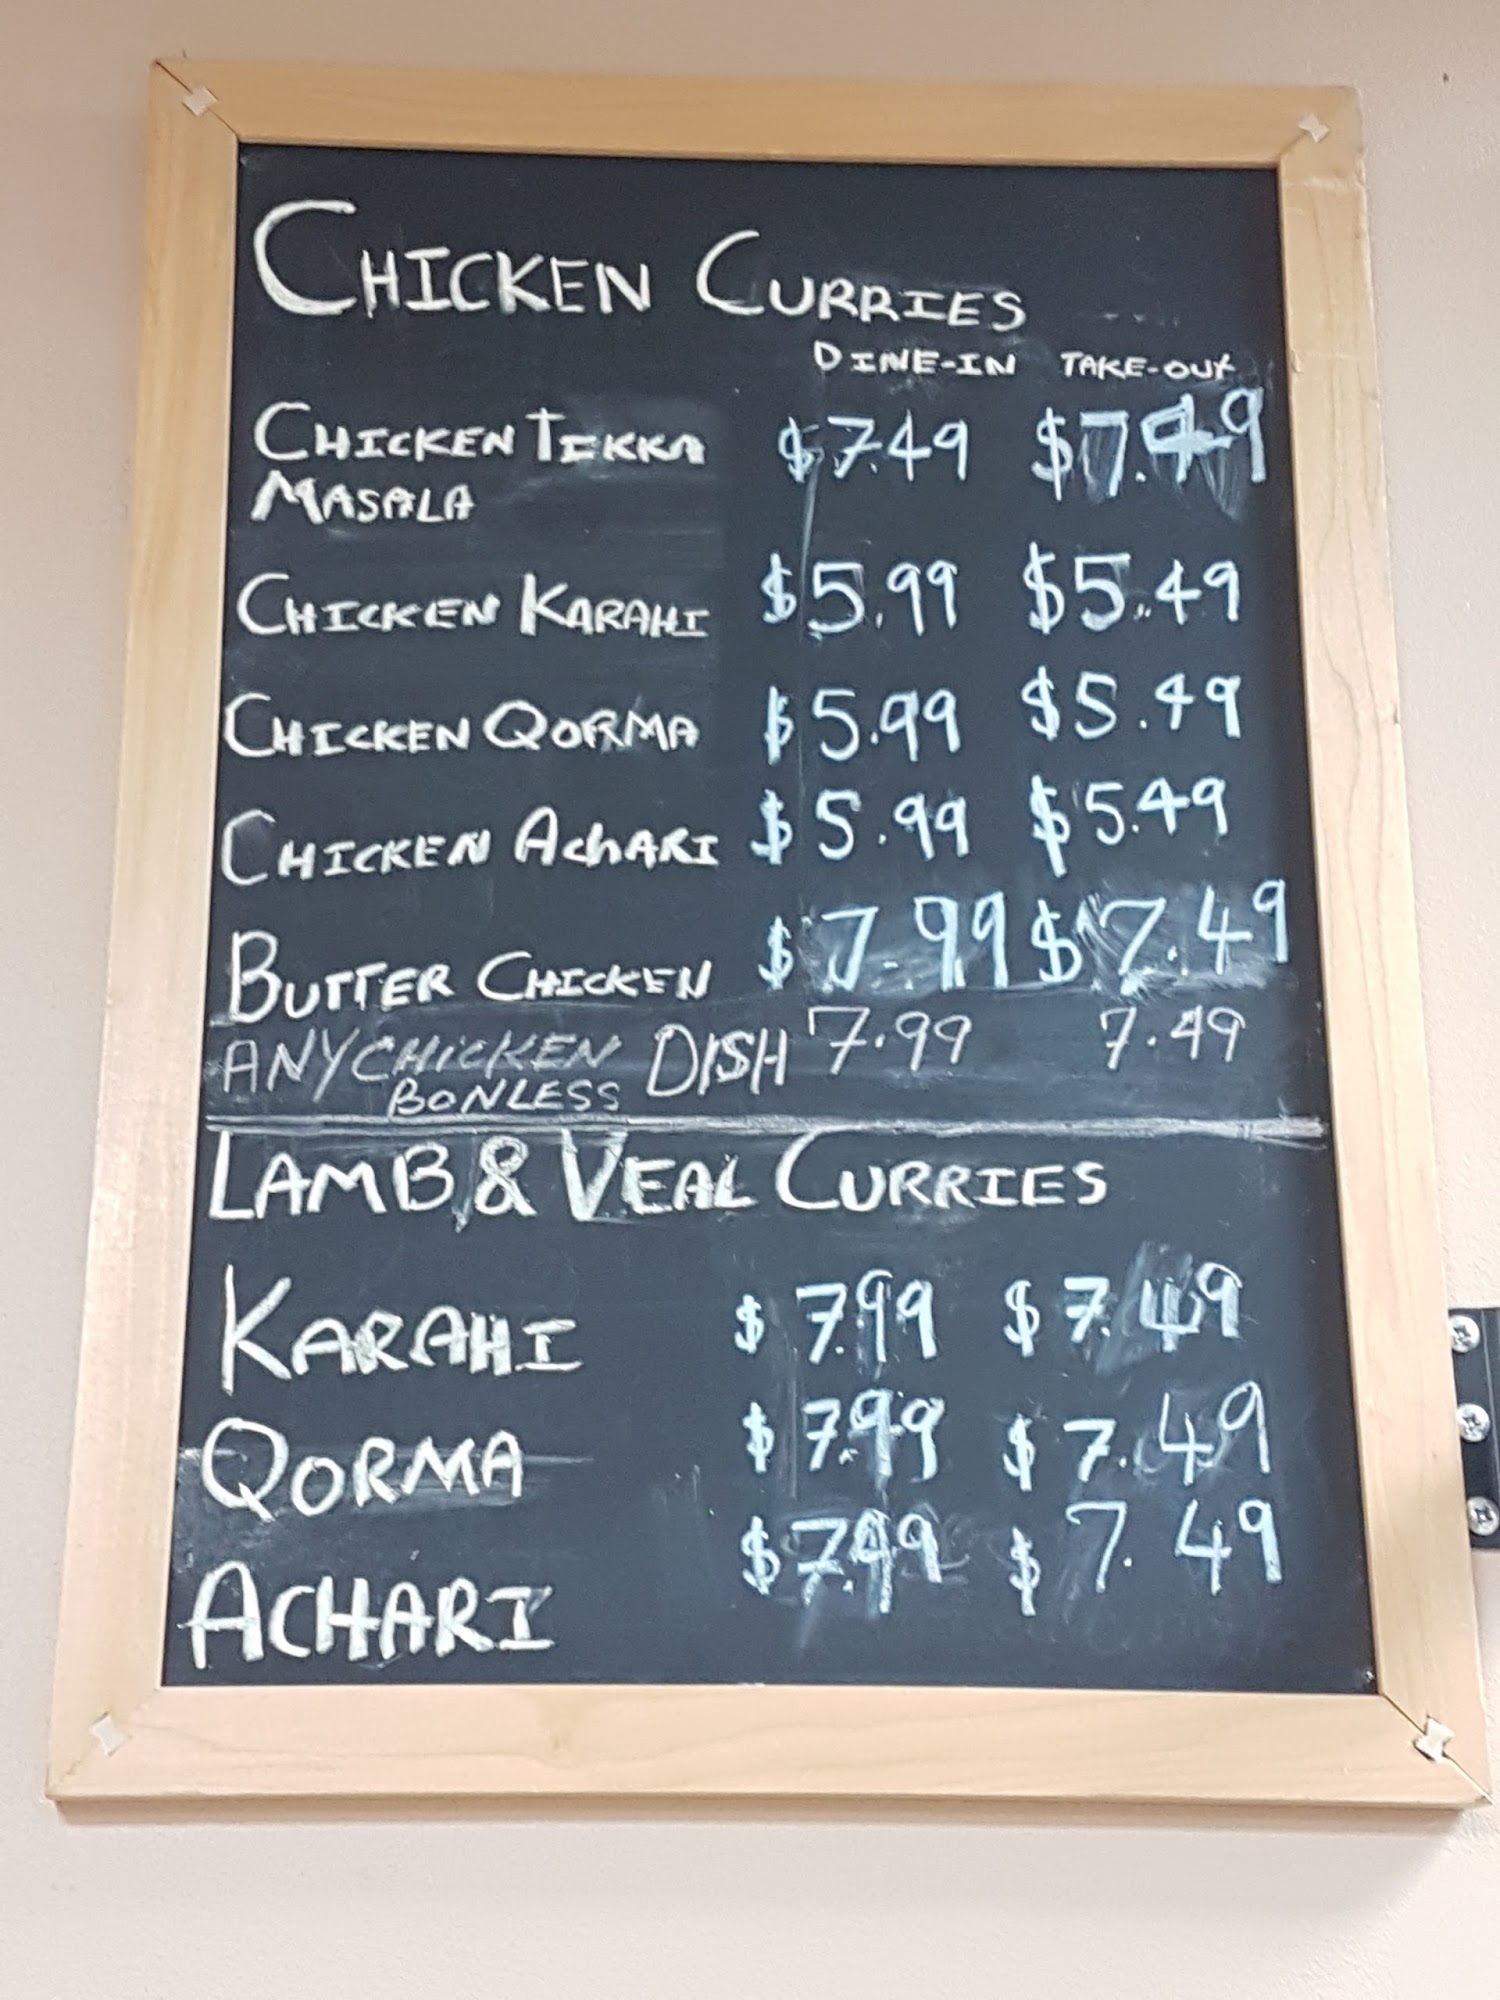 CHICKEN CURRIES
DINE-IN TAKE-OUT
CHICKEN TIKKA $7.49 $7.49
MASALA
CHICKEN KARAHI $5.99 $5.49
CHICKEN QORMA $5.99 $5.49
CHICKEN ACHARI $5.99 $5.49
BUTTER CHICKEN $7.99 $7.49
ANY CHICKEN DISH 7.99 7.49
BONLESS
LAMB & VEAL CURRIES
KARAHI $7.99 $7.49
QORMA $7.99 $7.49
ACHARI $7.99 $7.49